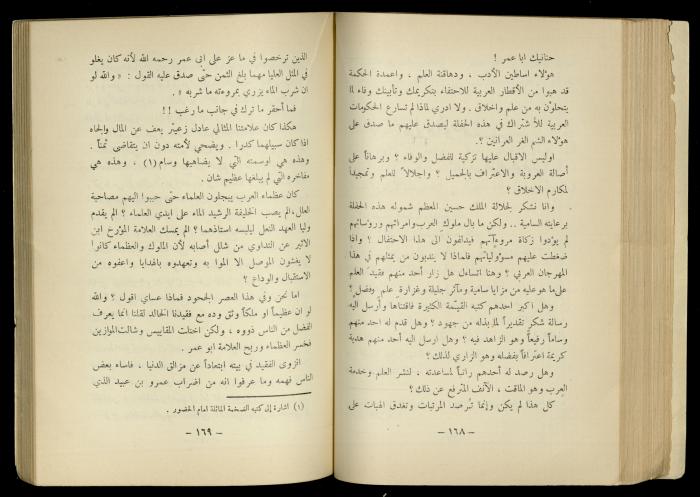 حنانيك ابا عمر !
هؤلاء اساطين الأدب ، ودهاقنة العلم ، واعمدة الحكمة
قد هبوا من الأقطار العربية للاحتفاء بتكريمك وتأبينك وفاء لما
يتحلون به من علم واخلاق . ولا ادري لماذا لم تسارع الحكومات
العربية للأشتراك في هذه الحفلة ليصدق عليهم ما صدق على
هؤلاء الشم الغر العرانين ؟.
اوليس الاقبال عليها تزكية للفضل والوفاء ؟ وبرهاناً على
أصالة العروبة والاعتراف بالجميل ؟ واجلالاً للعلم وتمجيداً
لمكارم الاخلاق ؟
وانا نشكر لجلالة الملك حسين المعظم شموله هذه الحفلة
برعايته السامية .. ولكن ما بال ملوك العرب وامرائهم ورؤسائهم
لم يؤدوا زكاة مروءآتهم فيدلفون الى هذا الاحتفال ؟ واذا
ضغطت عليهم مسؤولياتهم فلماذا لا ينتدبون من يمثلهم في هذا
المهرجان العربي ؟ وهنا اتساءل هل زار أحد منهم فقيد العلم
على ما هو عليه من مزايا سامية ومآثر جليلة وغزارة علم وفضل؟
وهل اكبر احدهم كتبه القيّمة الكثيرة فاقتناها وأرسل اليه
رسالة شكر تقديراً لما بذله من جهود ؟ وهل قدم له احد منهم
وساماً رفيعاً وهو الزاهد فيه ؟ وهل ارسل اليه أحد منهم هدية
كريمة اعترافاً بفضله وهو الزاري لذلك ؟
وهل رصد له أحدهم راتباً لمساعدته ، لنشر العلم وخدمة
العرب وهو الماقت ، الآنف المترفع عن ذلك ؟
كل هذا لم يكن وإنما تُرصد المرتبات وتغدق الهبات على
- ١٦٨ -
الذين ترخصوا في ما عز على ابي عمر رحمه الله لأنه كان يغلو
في المثل العليا مهما بلغ الثمن حتى صدق عليه القول : « والله لو
ان شرب الماء يزري بمروءته ما شربه » .
فما أحقر ما ترك في جانب ما رغب !!
هكذا كان علامتنا المثالي عادل زعيتر يعف عن المال والجاه
اذا كان سبيلهما كدرا . ويضحي لأمته دون ان يتقاضى ثمناً .
وهذه هي اوسمته التي لا يضاهيها وسام (١) ، وهذه هي
مفاخره التي لم يبلغها عظيم شان .
كان عظماء العرب يبجلون العلماء حتى حببوا اليهم مصاحبة
العلل، ألم يصب الخليفة الرشيد الماء على ايدي العلماء ؟ ألم يقدم
وليا العهد النعل ليلبسه استاذهما ؟ ألم يمسك العلامة المؤرخ ابن
الاثير عن التداوي من شلل أصابه لأن الملوك والعظماء كانوا
لا يغشون الموصل الا الموا به وتعهدوه بالهدايا واعفوه من
الاستقبال والوداع ؟
اما نحن وفي هذا العصر الجحود فماذا عساي اقول ؟ والله
لو ان عظيماً او ملكاً وثق وده مع فقيدنا الخالد لقلنا انما يعرف
الفضل من الناس ذووه ، ولكن اختلت المقاييس وشالت الموازين
فخسر العظماء وربح العلامة ابو عمر .
انزوى الفقيد في بيته ابتعاداً عن مزالق الدنيا ، فاساء بعض
الناس فهمه وما عرفوا انه من اضراب عمرو بن عبيد الذي
(١) اشارة إلى كتبه الضخمة الماثلة امام الحضور .
- ١٦٩ -